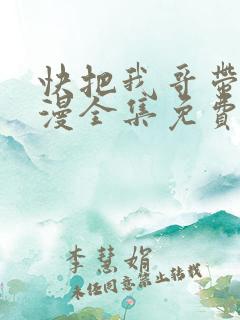 快把我哥带
漫全集免费
李慧娟
未经同意禁止转载